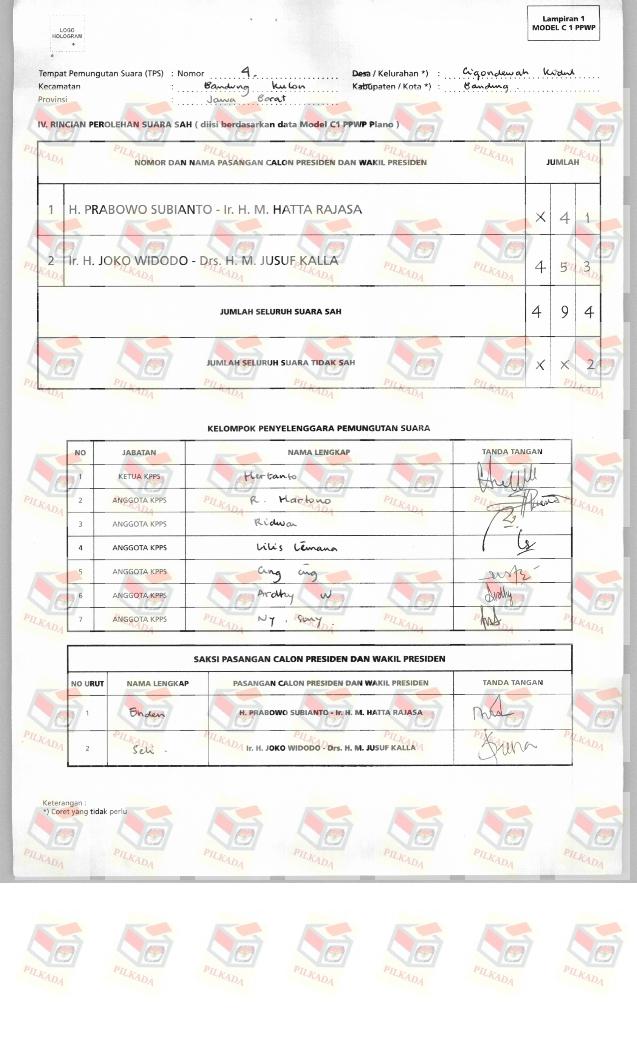 LOGO
HOLOGRAM
Lampiran 1
MODEL C 1 PPWP
Tempat Pemungutan Suara (TPS) : Nomor 4. Desa / Kelurahan *) : Cigondewah Kidul
Kecamatan : Bandung Kulon Kabupaten / Kota *) : Bandung
Provinsi : Jawa Barat
IV. RINCIAN PEROLEHAN SUARA SAH ( diisi berdasarkan data Model C1 PPWP Plano )
NOMOR DAN NAMA PASANGAN CALON PRESIDEN DAN WAKIL PRESIDEN JUMLAH
1 H. PRABOWO SUBIANTO - Ir. H. M. HATTA RAJASA X 4 1
2 Ir. H. JOKO WIDODO - Drs. H. M. JUSUF KALLA 4 5 3
JUMLAH SELURUH SUARA SAH 4 9 4
JUMLAH SELURUH SUARA TIDAK SAH X X 2
KELOMPOK PENYELENGGARA PEMUNGUTAN SUARA
NO JABATAN NAMA LENGKAP TANDA TANGAN
1 KETUA KPPS Hertanto
2 ANGGOTA KPPS R. Hartono
3 ANGGOTA KPPS Ridwan
4 ANGGOTA KPPS Lilis
5 ANGGOTA KPPS
6 ANGGOTA KPPS Ardhy W
7 ANGGOTA KPPS Ny. Sony
SAKSI PASANGAN CALON PRESIDEN DAN WAKIL PRESIDEN
NO URUT NAMA LENGKAP PASANGAN CALON PRESIDEN DAN WAKIL PRESIDEN TANDA TANGAN
1 Enden H. PRABOWO SUBIANTO - Ir. H. M. HATTA RAJASA
2 Seli Ir. H. JOKO WIDODO - Drs. H. M. JUSUF KALLA
Keterangan :
*) Coret yang tidak perlu
PILKADA